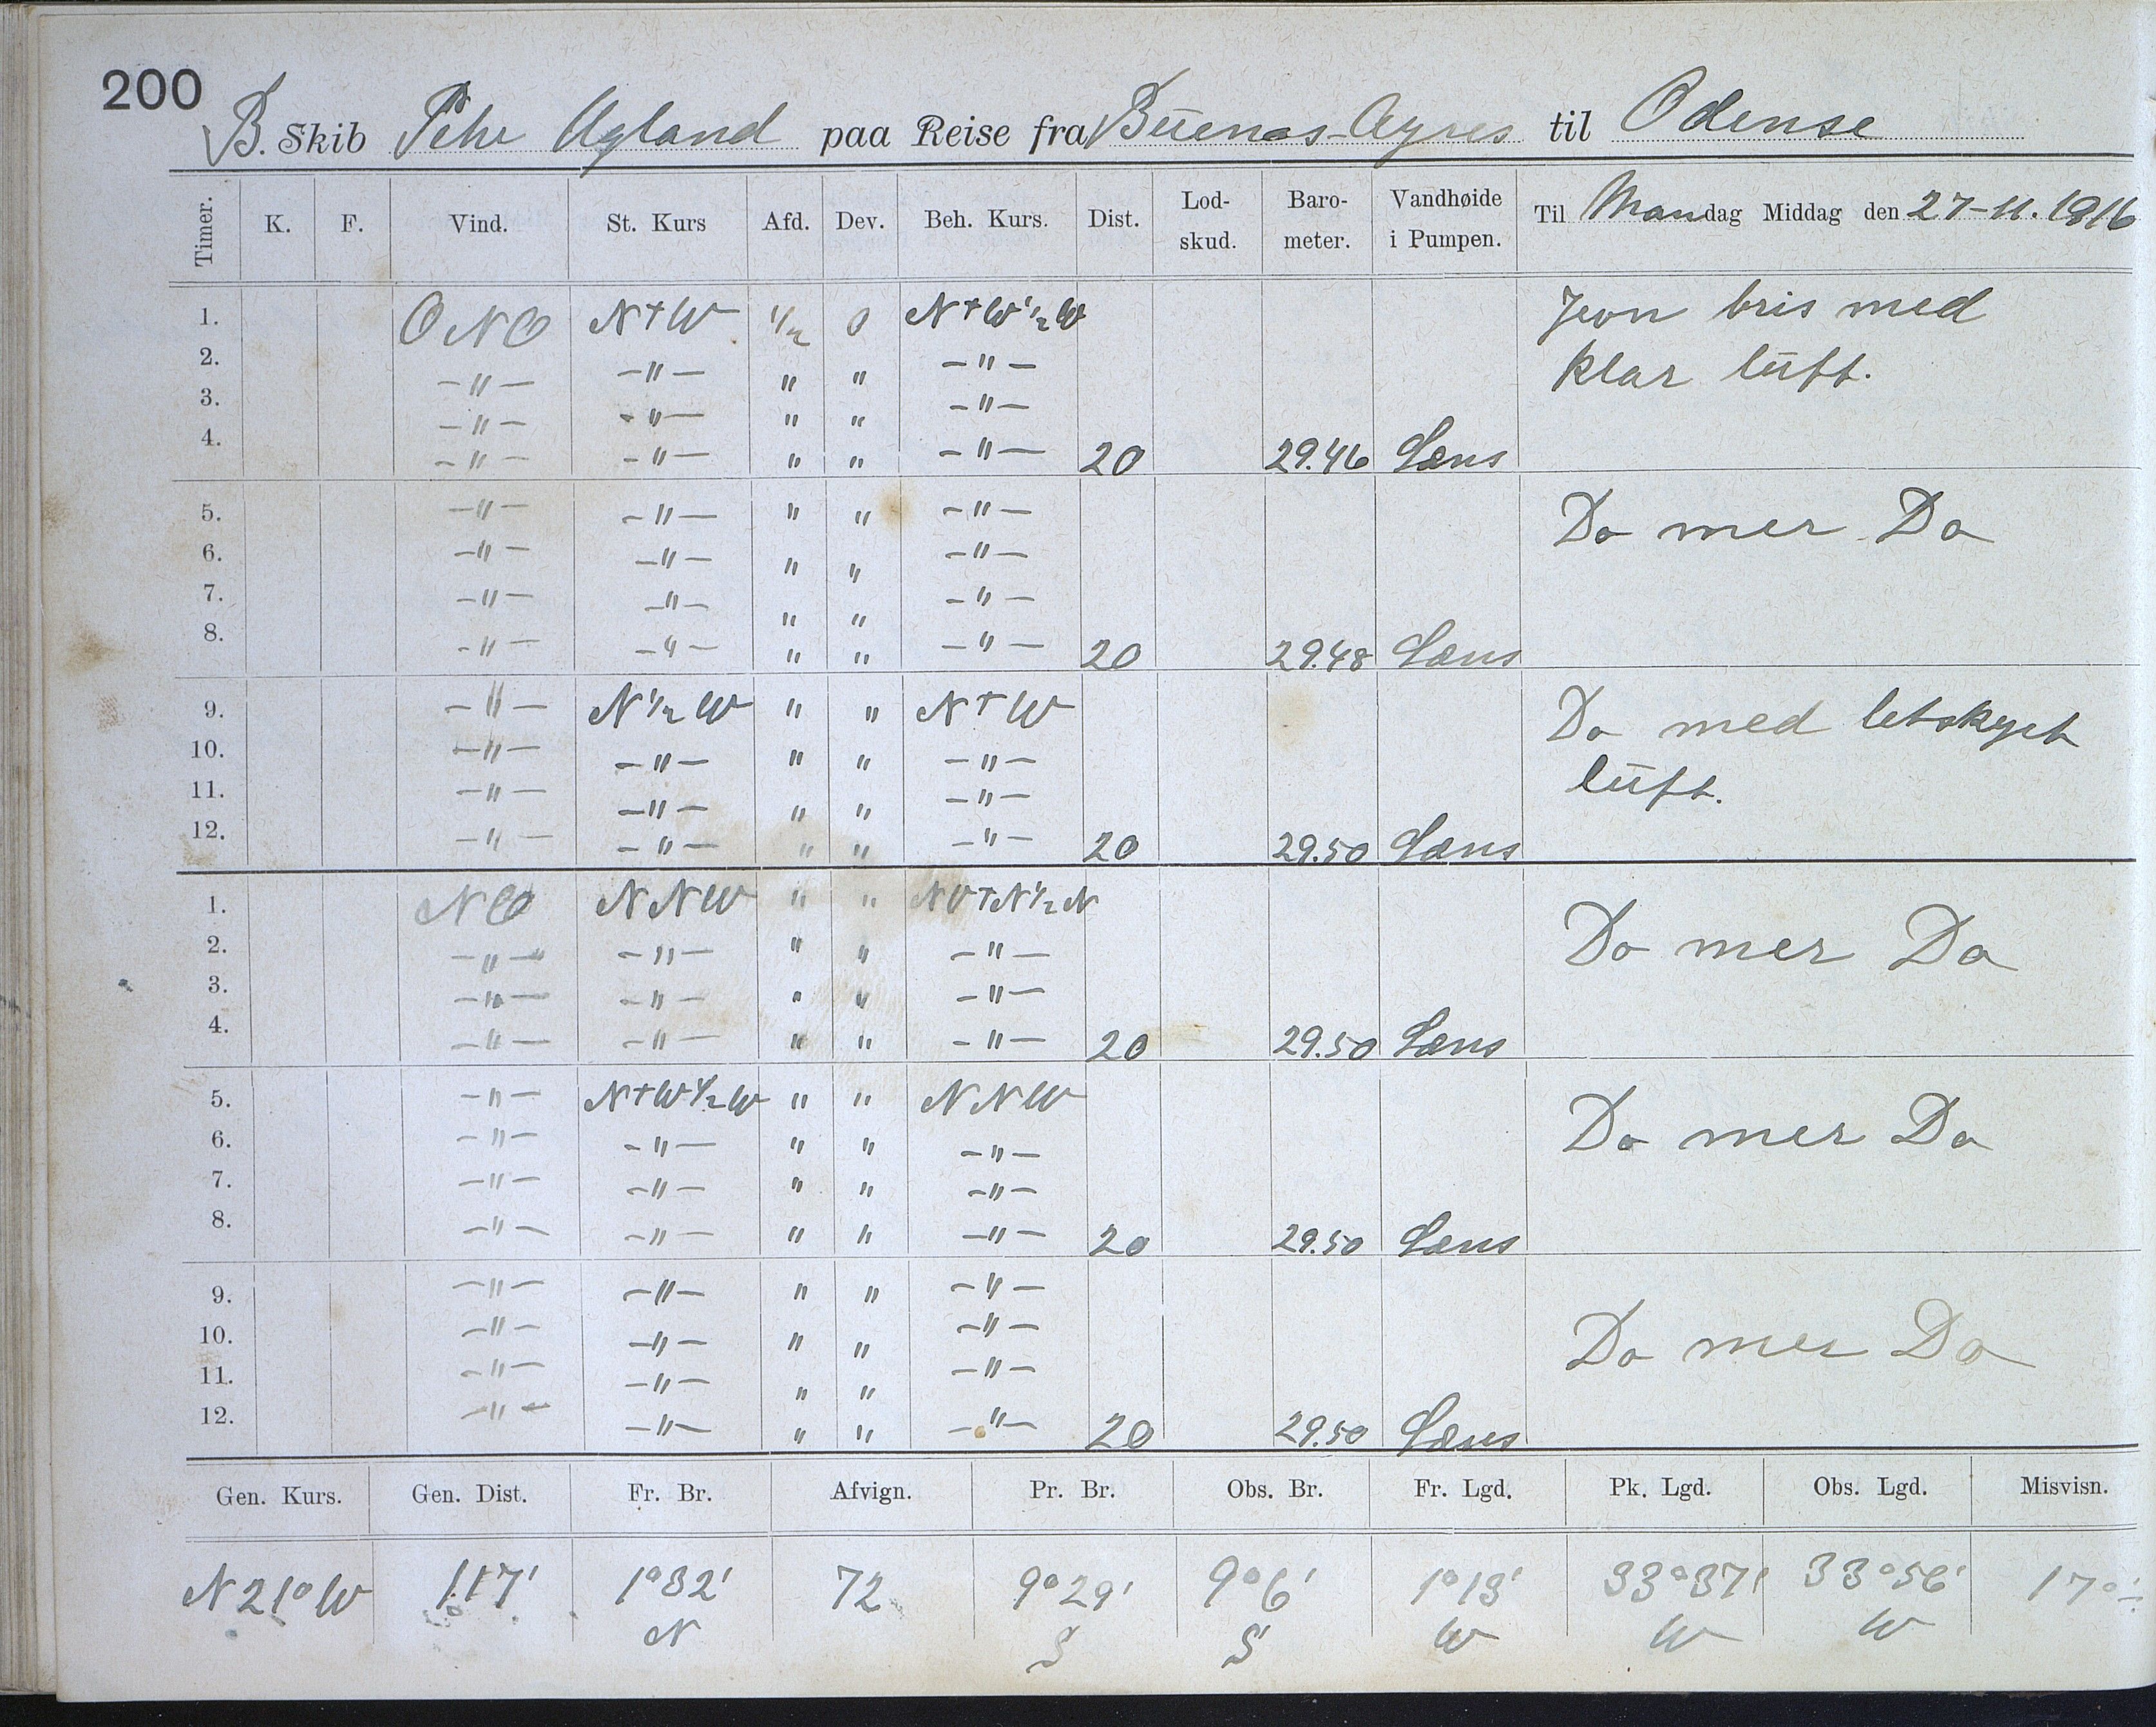 200
B. Skib Pehr Ugland paa Reise fra Buenos-Ayres til Odense
Timer. K. F. Vind. St. Kurs Afd. Dev. Beh. Kurs. Dist. Lod-skud. Baro-meter. Vandhøide i Pumpen. Til Mandag Middag den 27-11. 1916
1. ONO N+W 1/2 0 N+W 1/2 W Jevn bris med
2. -"- -"- " " -"- klar luft.
3. -"- -"- " " -"-
4. -"- -"- " " -"- 20 29.46 Læns
5. -"- -"- " " -"- Do mer Do
6. -"- -"- " " -"-
7. -"- -"- " " -"-
8. -"- -"- " " -"- 20 29.48 Læns
9. -"- N 1/2 W " " N+W Do med letskyet
10. -"- -"- " " -"- luft.
11. -"- -"- " " -"-
12. -"- -"- " " -"- 20 29.50 Læns
1. NO NNW " " NV+N 1/2 N Do mer Do
2. -"- -"- " " -"-
3. -"- -"- " " -"-
4. -"- -"- " " -"- 20 29.50 Læns
5. -"- N+W 1/2 W " " NNW Do mer Do
6. -"- -"- " " -"-
7. -"- -"- " " -"-
8. -"- -"- " " -"- 20 29.50 Læns
9. -"- -"- " " -"- Do mer Do
10. -"- -"- " " -"-
11. -"- -"- " " -"-
12. -"- -"- " " -"- 20 29.50 Læns
Gen. Kurs. Gen. Dist. Fr. Br. Afvign. Pr. Br. Obs. Br. Fr. Lgd. Pk. Lgd. Obs. Lgd. Misvisn.
N 21° W 117' 1°32' 72 9°29' 9°6' 1°13' 33°37' 33°56' 17°
N S S W W W